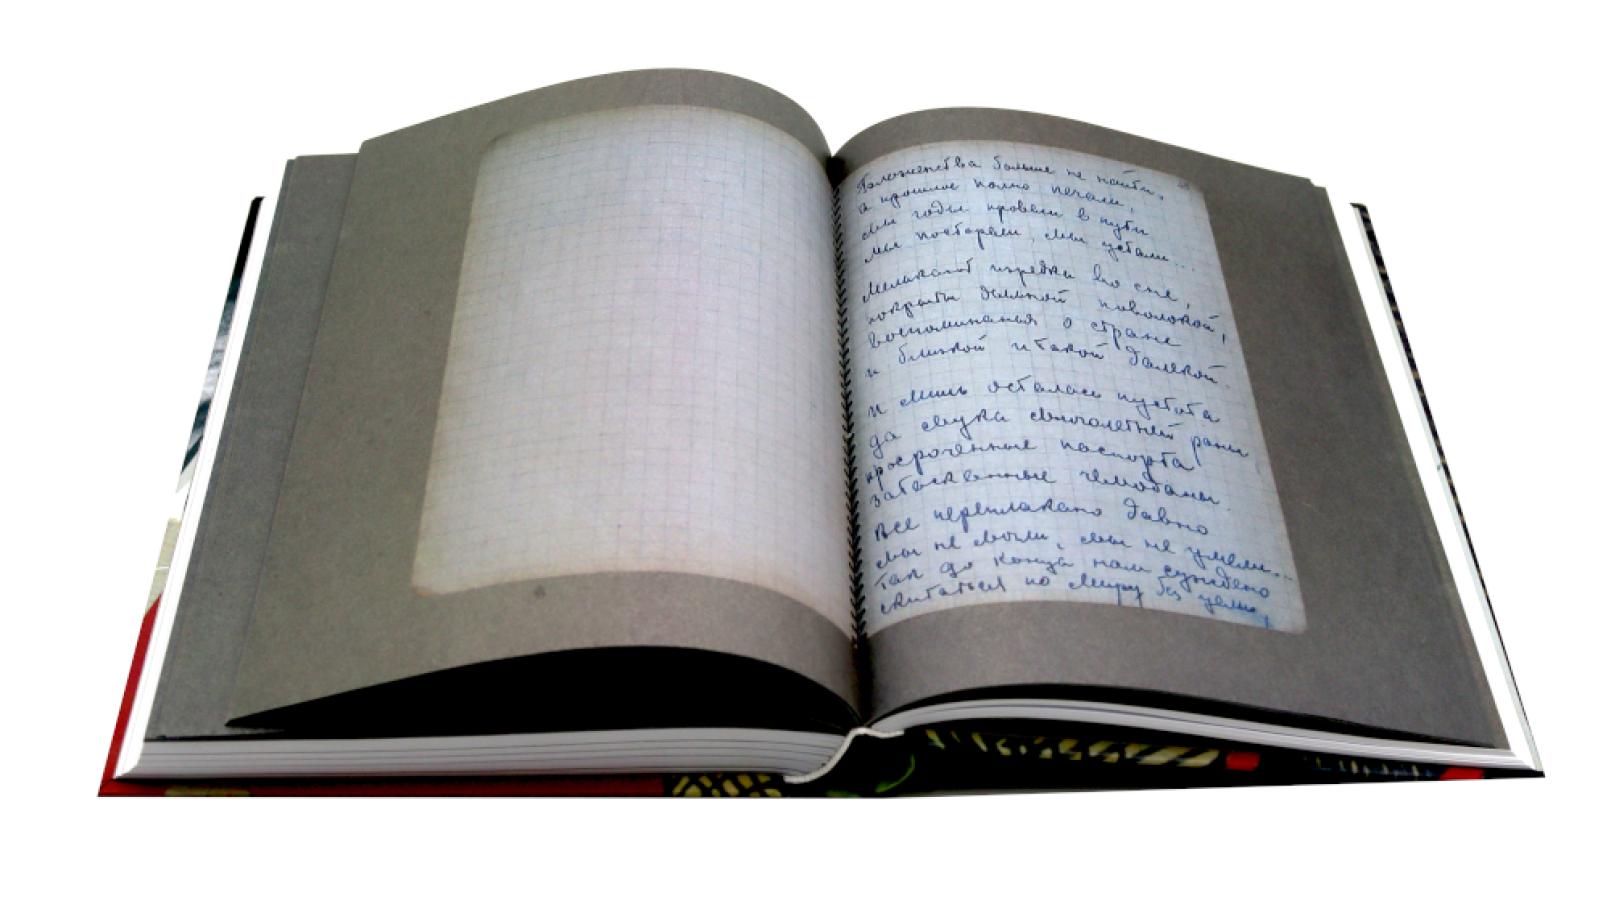 Пол женства больше не найти,
а прошлое полно печали,
мы годы провели в пути
мы постарели, мы устали...
Мелькают изредка во сне,
покрыты дымкой поволокой,
воспоминанья о стране
и близкой и такой далекой.
И лишь осталась пустота
да мука многолетней раны
просроченные паспорта
затасканные чемоданы.
Все переплакано давно
мы не могли, мы не умели...
Так до конца нам суждено
скитаться по миру без цели,